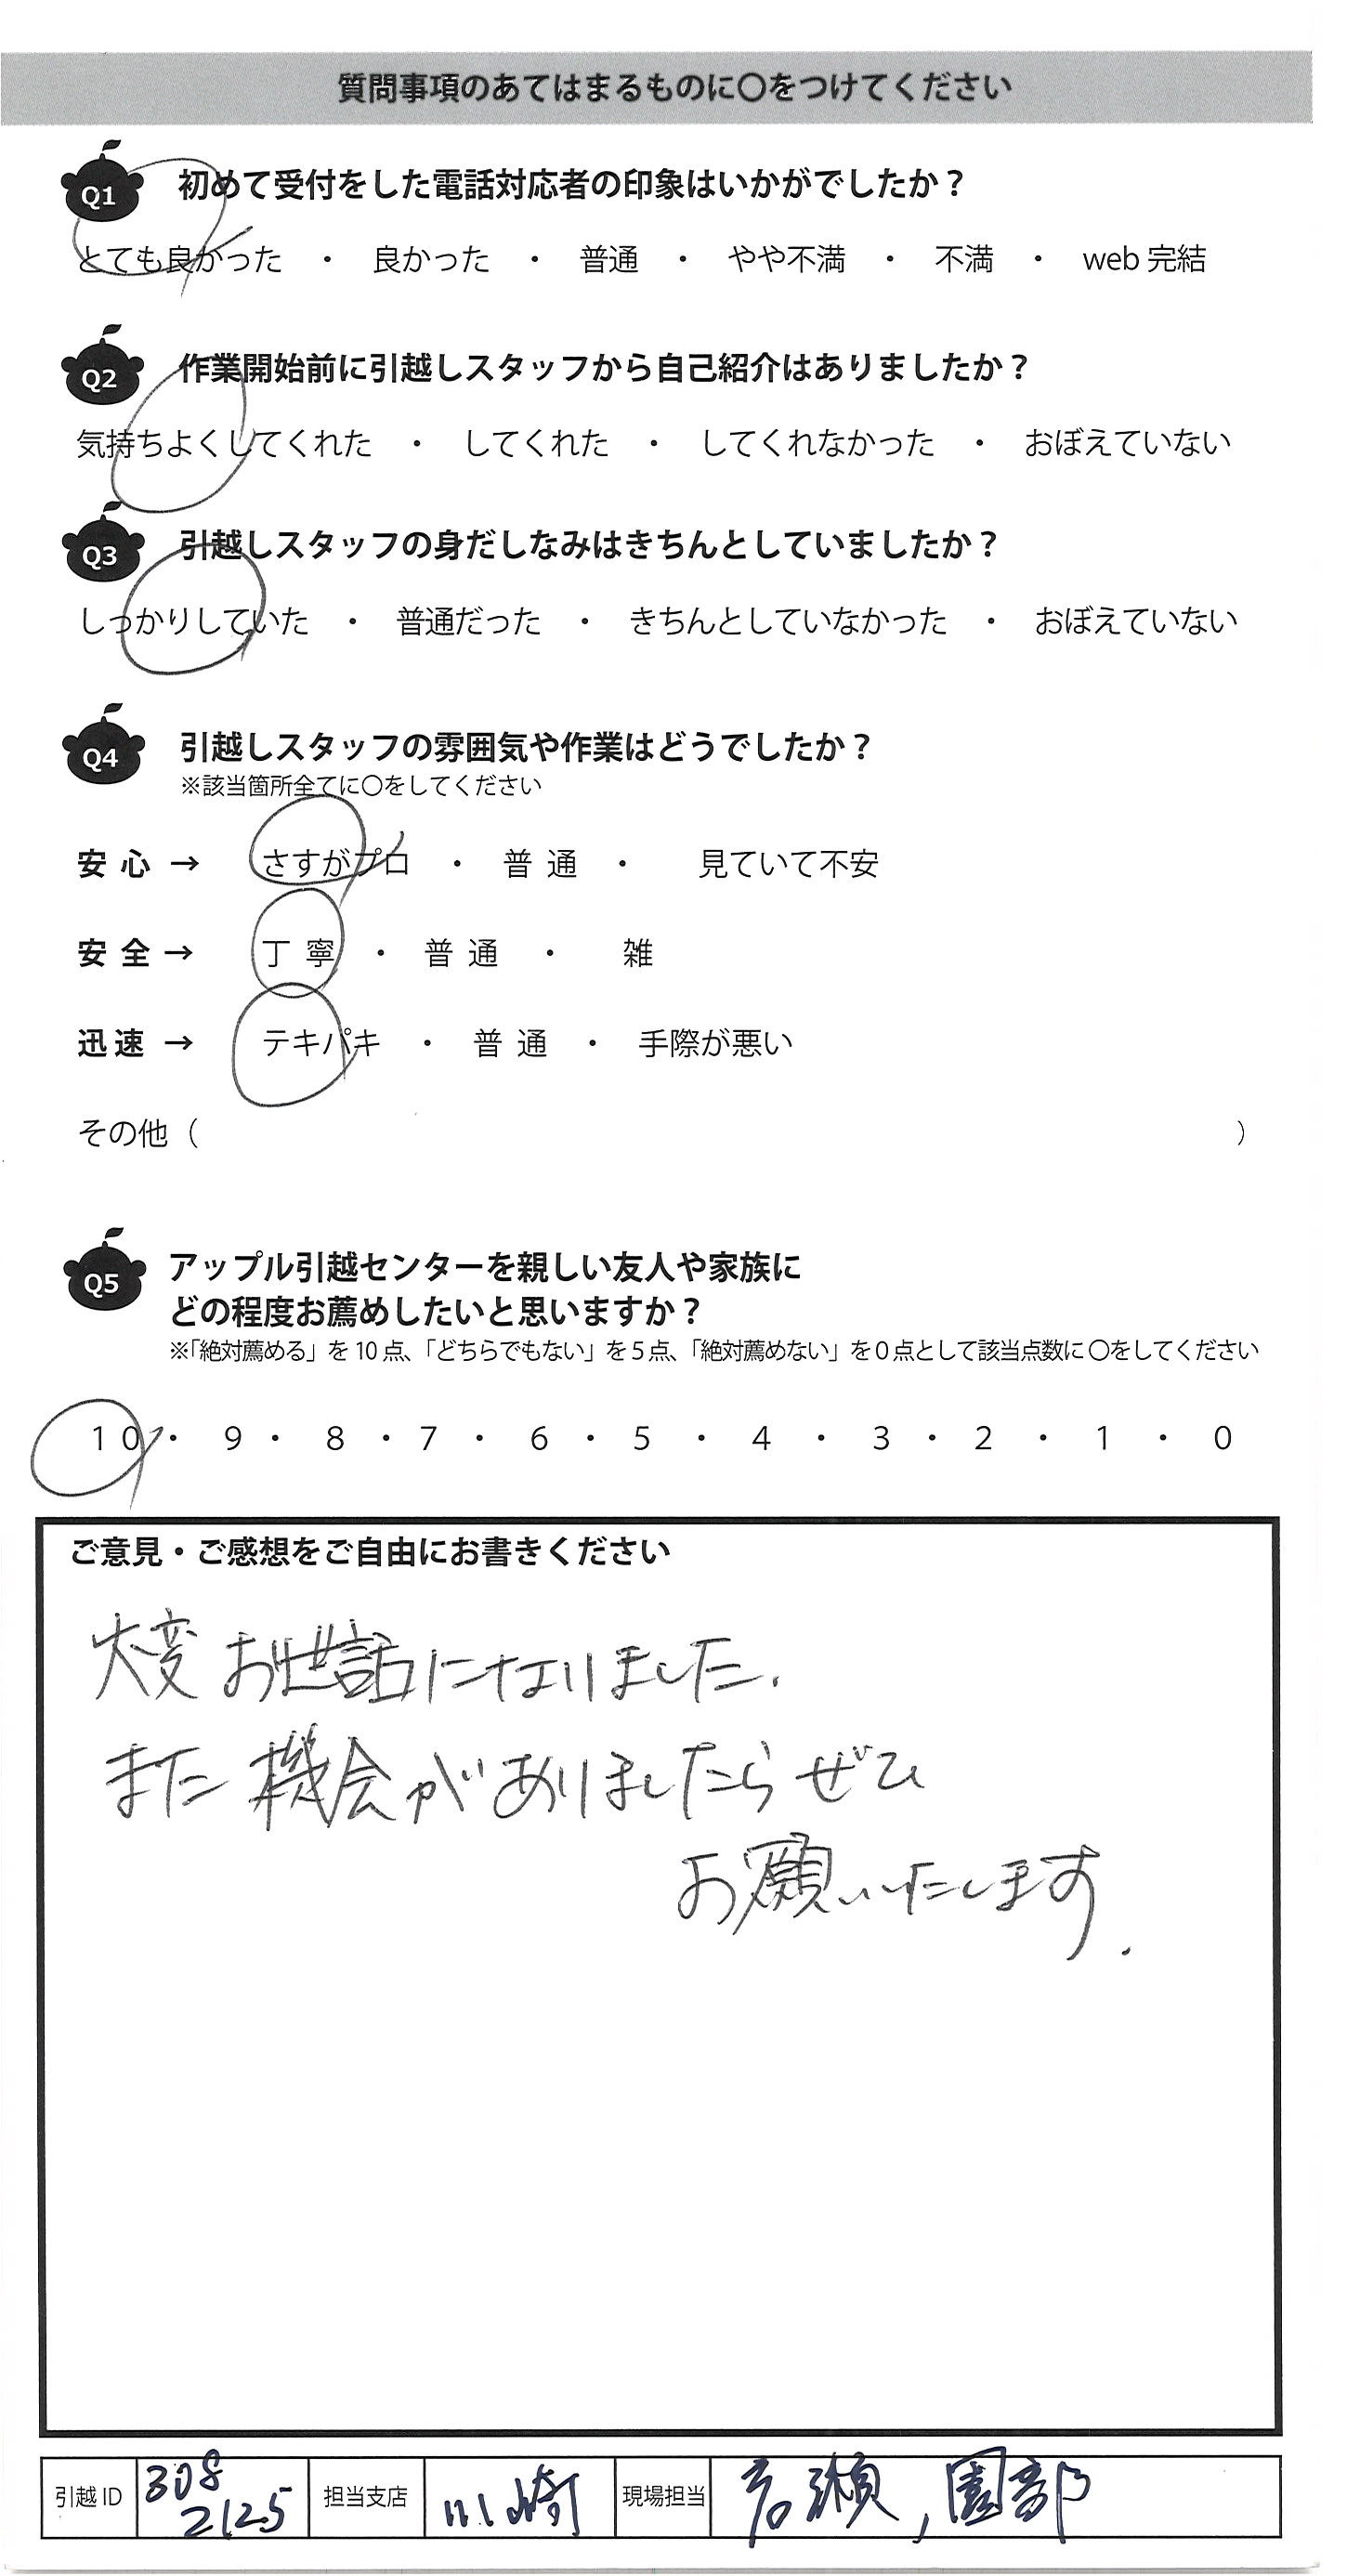 質問事項のあてはまるものに〇をつけてください
Q1 初めて受付をした電話対応者の印象はいかがでしたか？
とても良かった ・ 良かった ・ 普通 ・ やや不満 ・ 不満 ・ web 完結
Q2 作業開始前に引越しスタッフから自己紹介はありましたか？
気持ちよくしてくれた ・ してくれた ・ してくれなかった ・ おぼえていない
Q3 引越しスタッフの身だしなみはきちんとしていましたか？
しっかりしていた ・ 普通だった ・ きちんとしていなかった ・ おぼえていない
Q4 引越しスタッフの雰囲気や作業はどうでしたか？
※該当箇所全てに〇をしてください
安心 → さすがプロ ・ 普通 ・ 見ていて不安
安全 → 丁寧 ・ 普通 ・ 雑
迅速 → テキパキ ・ 普通 ・ 手際が悪い
その他（ ）
Q5 アップル引越センターを親しい友人や家族に
どの程度お薦めしたいと思いますか？
※「絶対薦める」を10点、「どちらでもない」を5点、「絶対薦めない」を0点として該当点数に〇をしてください
10 ・ 9 ・ 8 ・ 7 ・ 6 ・ 5 ・ 4 ・ 3 ・ 2 ・ 1 ・ 0
ご意見・ご感想をご自由にお書きください
大変お世話になりました.
また機会がありましたらぜひ
お願いいたします.
引越ID 308 2125 担当支店 川崎 現場担当 , 園部